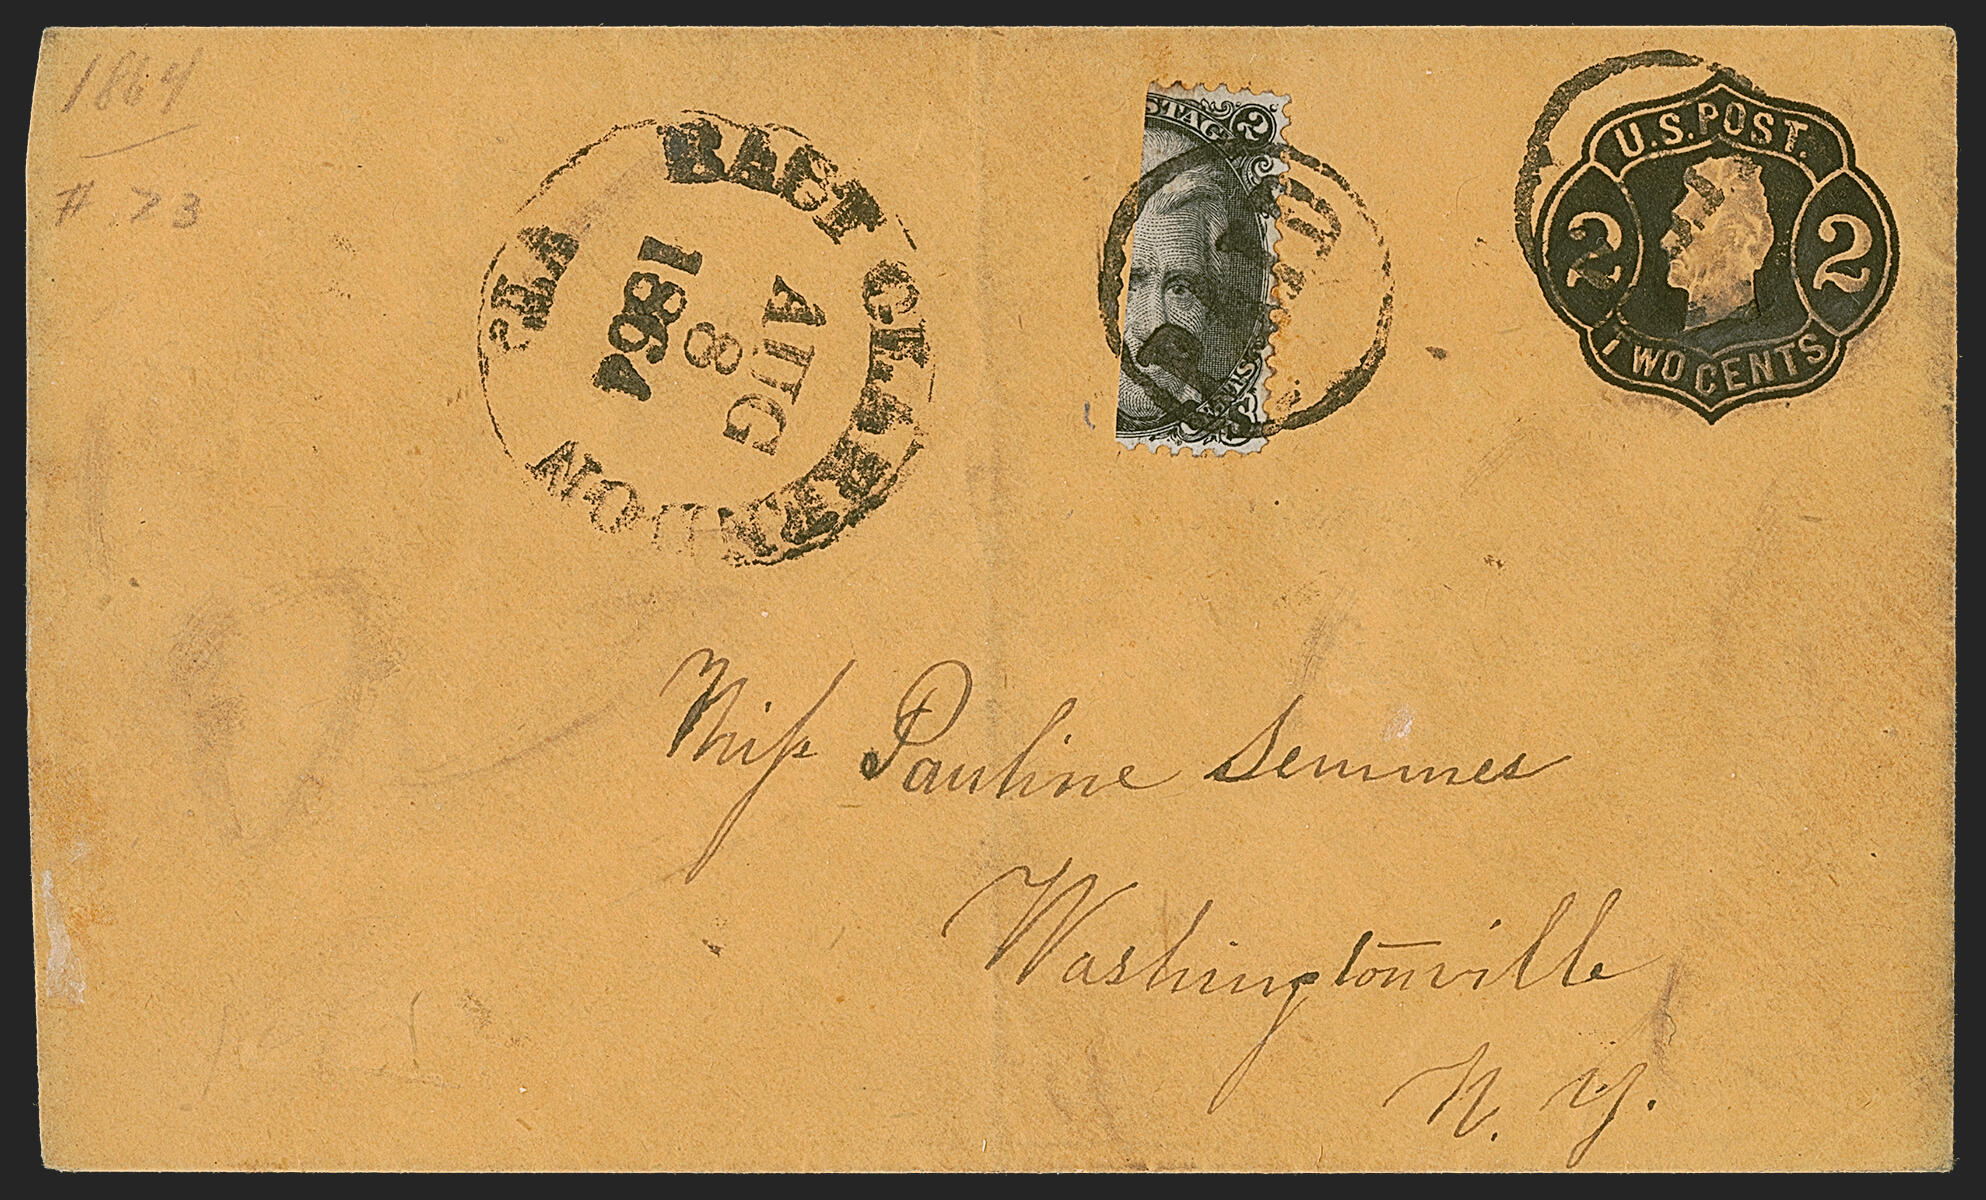 1864
# 73
EAST CLARENDON VT.
AUG
8
1864
STAGE 2
U.S. POST.
2 2
TWO CENTS
Miss Pauline Semmes
Washingtonville
N. Y.